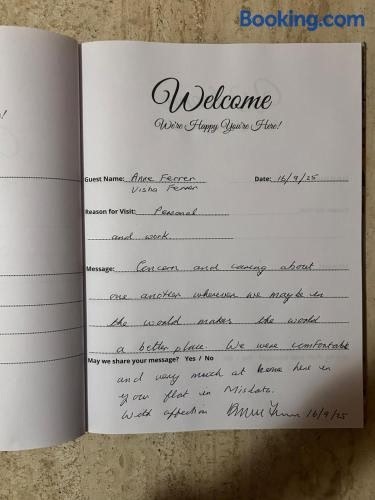 Booking.com
Welcome
We're Happy You're Here!
Guest Name: Anne Ferrer
Visha Ferrer
Date: 16/9/25
Reason for Visit: Personal
and work.
Message: Concern and caring about
one another wherever we maybe in
the world makes the world
a better place. We were comfortable
May we share your message? Yes / No
and very much at home here in
your flat in Mislata.
With affection 16/9/25